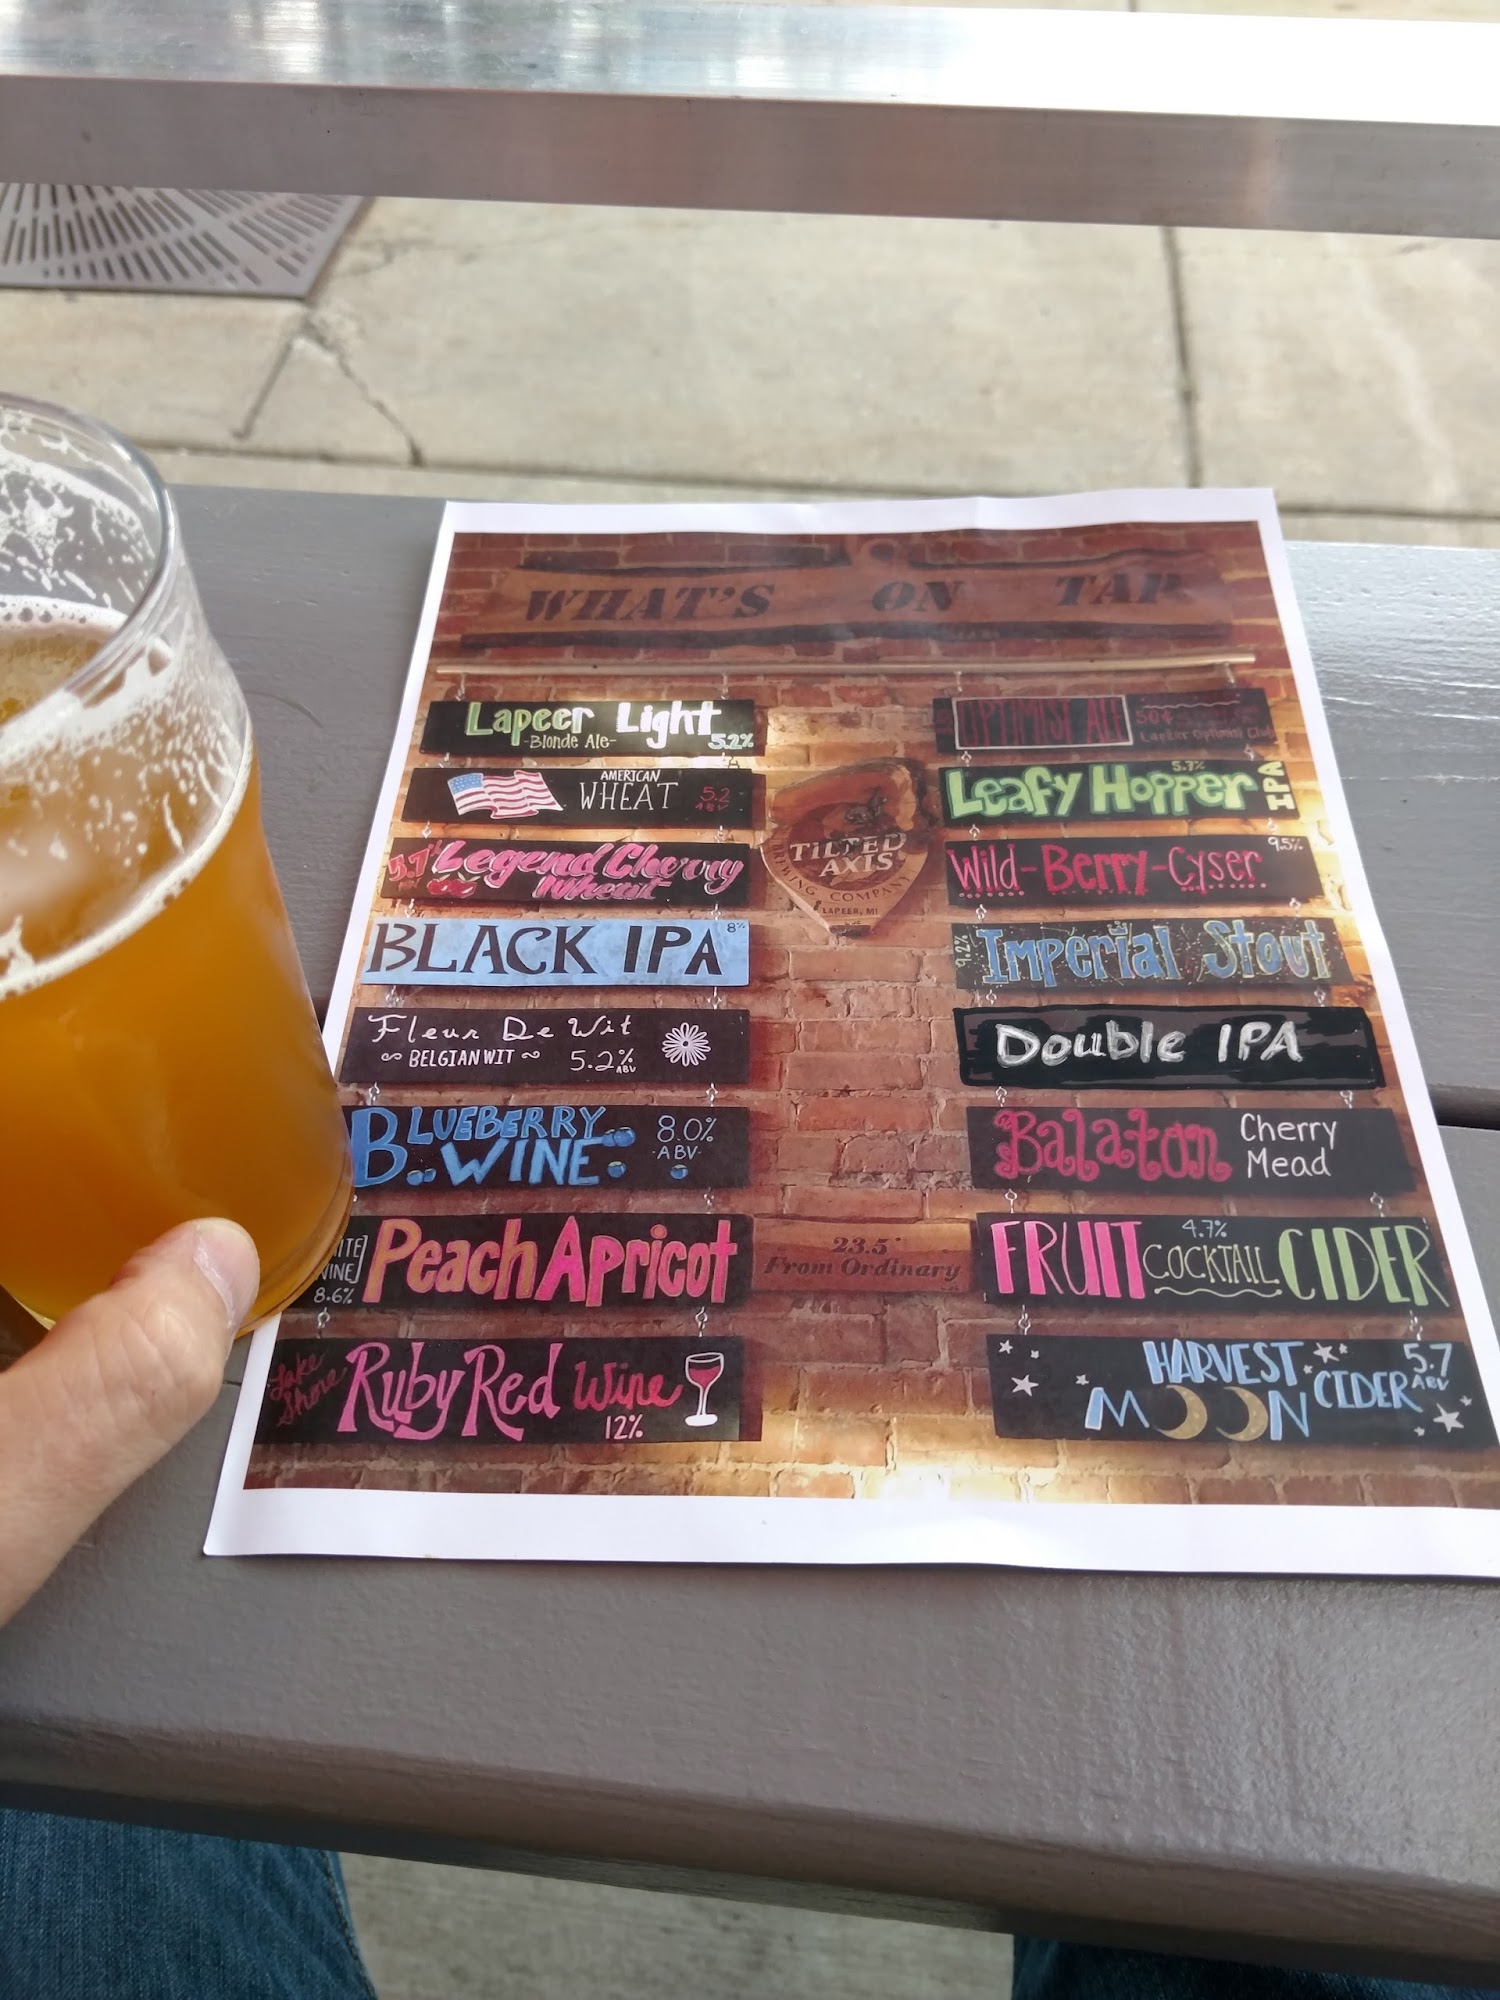 WHAT'S ON TAP
Lapeer Light
-Blonde Ale-
5.2%
AMERICAN
WHEAT
5.2
ABV
5.7%
Legend Cherry
Wheat
BLACK IPA
8%
Fleur De Wit
BELGIAN WIT
5.2%
ABV
BLUEBERRY
WINE
8.0%
-ABV-
WINE]
8.6%
Peach Apricot
Lake
Shore
Ruby Red Wine
12%
TILTED
AXIS
BREWING COMPANY
LAPEER, MI
23.5°
From Ordinary
OPTIMIST ALE
50¢
Lapeer Optimist Club
5.7%
Leafy Hopper
IPA
Wild-Berry-Cyser
9.5%
9.2%
Imperial Stout
Double IPA
Balaton
Cherry
Mead
FRUIT
4.7%
COCKTAIL
CIDER
HARVEST
MOON
CIDER
5.7
ABV